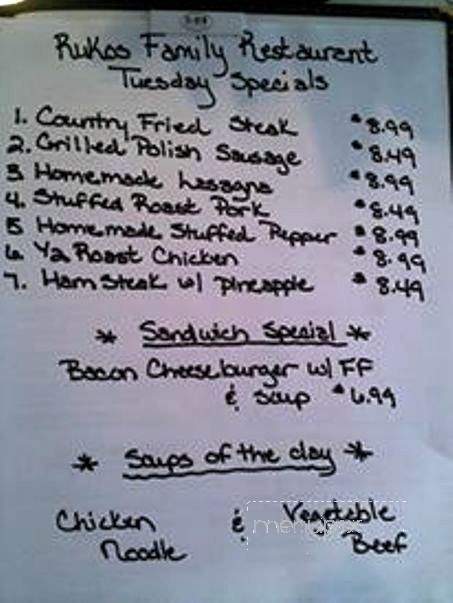 Rukas Family Restaurant
Tuesday Specials
1. Country Fried Steak $8.99
2. Grilled Polish Sausage $8.49
3 Homemade Lasagna $8.99
4. Stuffed Roast Pork $8.49
5 Homemade Stuffed Pepper $8.99
6. 1/2 Roast Chicken $8.99
7. Ham Steak w/ pineapple $8.49
* Sandwich Special *
Bacon Cheeseburger w/ FF
& Soup $6.99
* Soups of the day *
Chicken & Vegetable
Noodle Beef
menupix